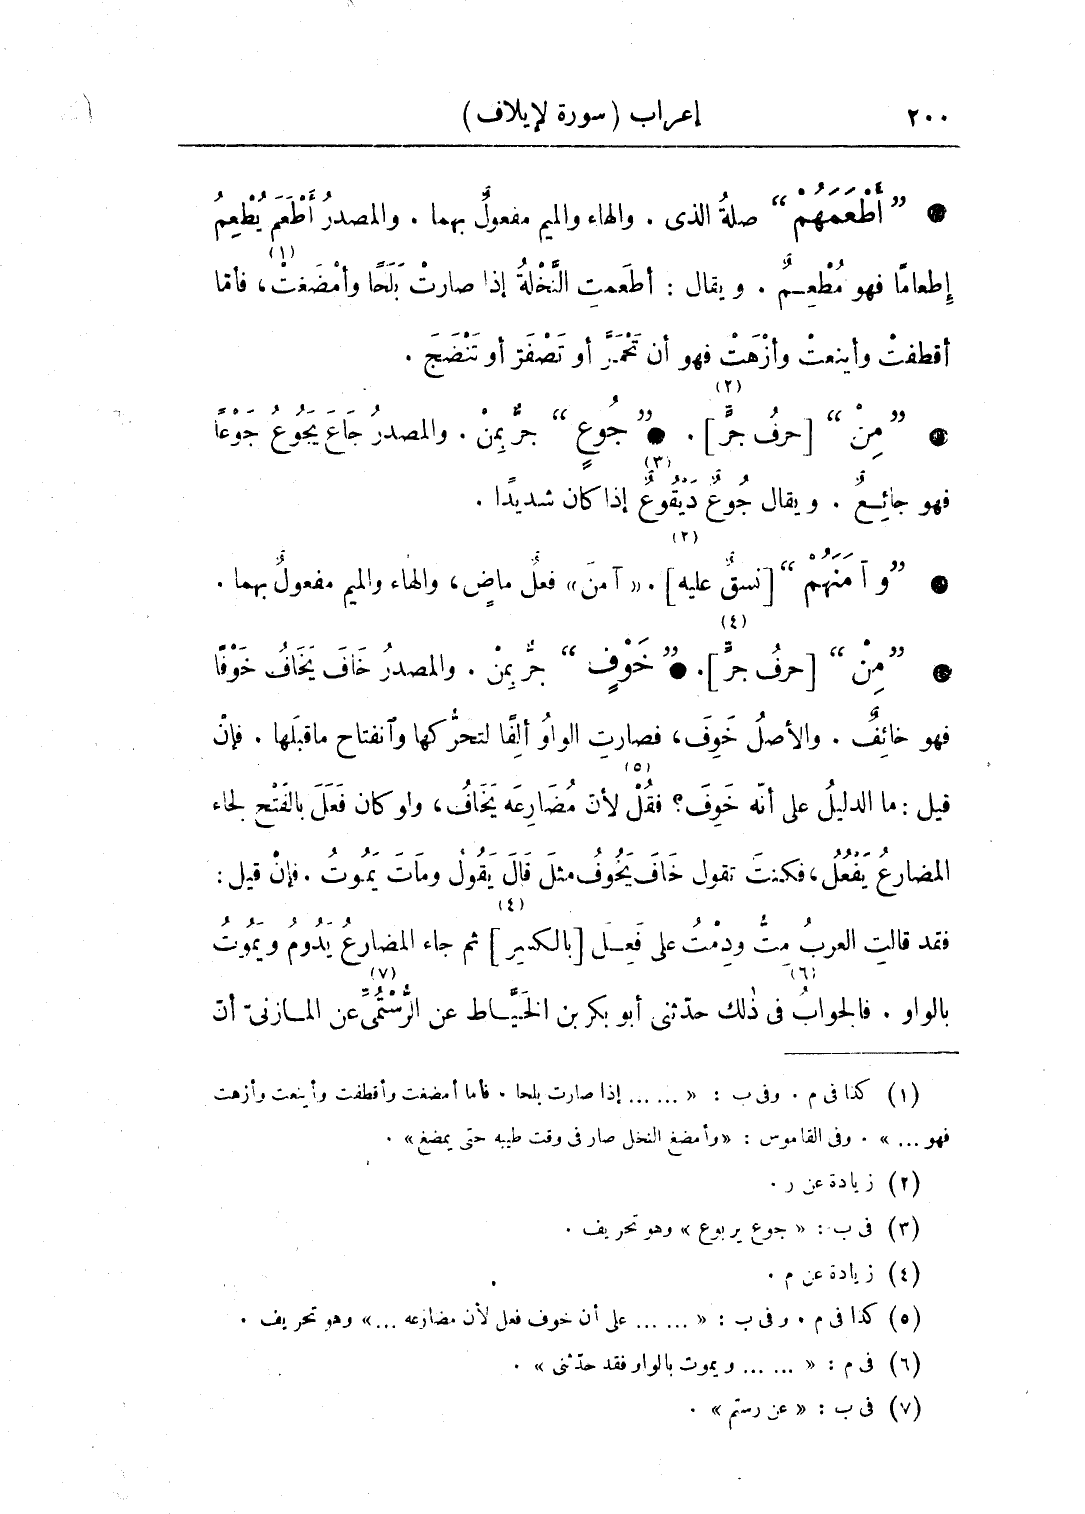 ٢٠٠ إعراب (سورة لإيلاف)
● ”أَطْعَمَهُمْ“ صلةُ الذى . والهاء والميم مفعولٌ بهما . والمصدرُ أَطْعَمَ يُطْعِمُ
إطعامًا فهو مُطْعِمٌ . ويقال : أطعَمتِ النَّخْلةُ إذا صارتْ بَلَحًا وأمْضَغتْ(١)، فأمّا
أقطفتْ وأينعتْ وأزْهَتْ فهو أن تَحْمَرّ أو تَصْفَرّ أو تَنْضَجَ .
● ”مِنْ“ [حرفُ جرٍّ](٢) . ● ”جُوعٍ“ جرٌّ بِمِنْ . والمصدرُ جَاعَ يَجُوعُ جَوْعًا
فهو جائِعٌ . ويقال جُوعٌ دَيْقُوعٌ(٣) إذا كان شديدًا .
● ”وآمَنَهُمْ“ [نسقٌ عليه](٢) . «آمنَ» فعلٌ ماضٍ، والهاء والميم مفعولٌ بهما .
● ”مِنْ“ [حرفُ جرٍّ](٤) . ● ”خَوْفٍ“ جرٌّ بِمِنْ . والمصدرُ خَافَ يَخَافُ خَوْفًا
فهو خائِفٌ . والأصلُ خَوِفَ، فصارتِ الواوُ ألِفًا لتحرُّكها وٱنفتاح ماقبلَها . فإنْ
قيل : ما الدليلُ على أنّه خَوِفَ؟ فقُلْ لأنّ مُضَارِعَه(٥) يَخَافُ، ولو كان فَعَلَ بالفَتْح لجاء
المضارعُ يَفْعُلُ، فكنتَ تقول خَافَ يَخُوفُ مثلَ قَالَ يَقُولُ ومَاتَ يَمُوتُ . فإنْ قيل :
فقد قالتِ العربُ مِتُّ ودِمْتُ على فَعِلَ [بالكسر](٤) ثم جاء المضارعُ يَدُومُ ويَمُوتُ
بالواو . فالجوابُ(٦) فى ذٰلك حدّثنى أبو بكر بن الخَيَّاط عن الرُّسْتُمِىِّ(٧) عن المازنىّ أنّ
(١) كذا فى م . وفى ب : «... ... إذا صارت بلحا . فأما أمضغت وأقطفت وأينعت وأزهت
فهو ...» . وفى القاموس : «وأمضغ النخل صار فى وقت طيبه حتى يمضغ» .
(٢) زيادة عن ر .
(٣) فى ب : «جوع يربوع» وهو تحريف .
(٤) زيادة عن م .
(٥) كذا فى م . وفى ب : «... ... على أن خوف فعل لأن مضارعه ...» وهو تحريف .
(٦) فى م : «... ... ويموت بالواو فقد حدّثنى» .
(٧) فى ب : «عن رستم» .